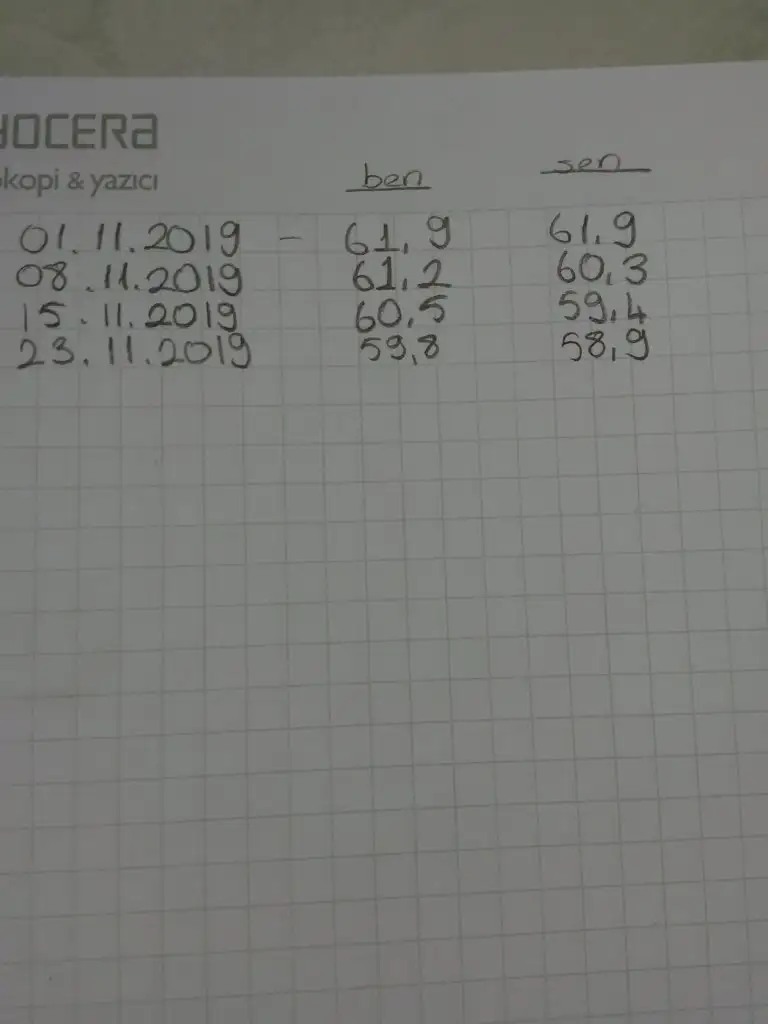 YOCERA
kopi & yazıcı
ben sen
01.11.2019 - 61,9 61,9
08.11.2019 61,2 60,3
15.11.2019 60,5 59,4
23.11.2019 59,8 58,9